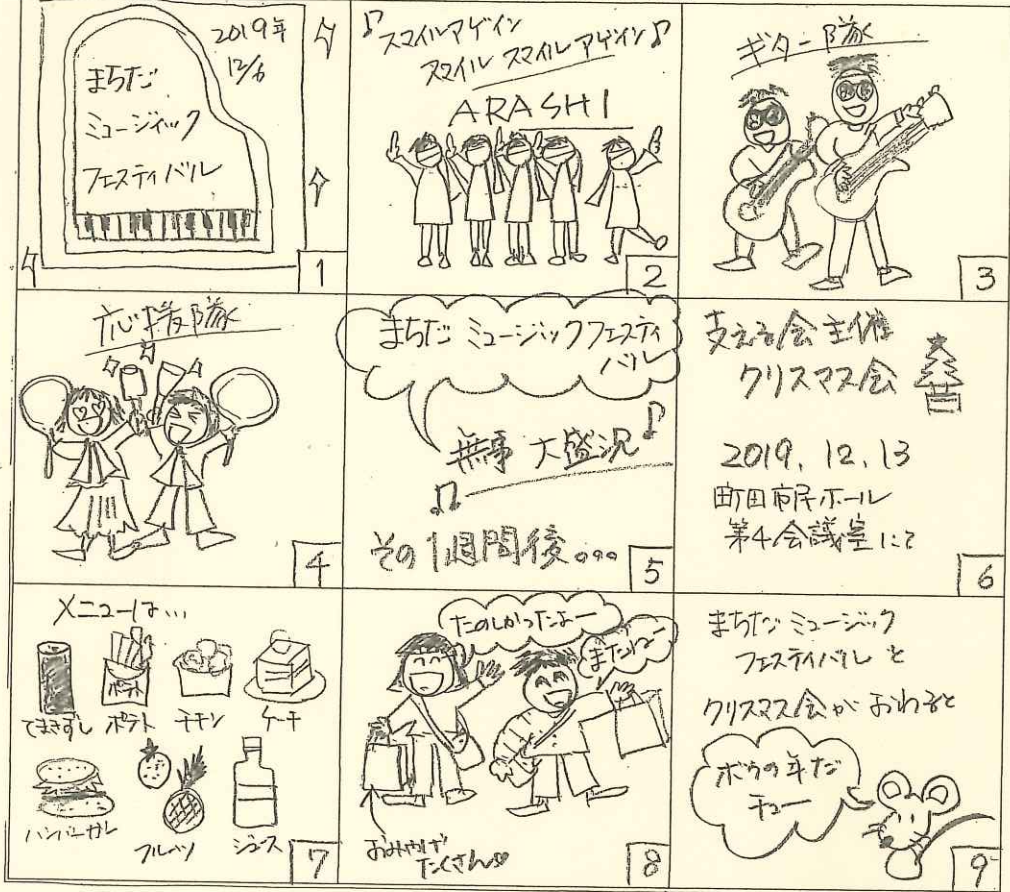 2019年
12/6
まちだ
ミュージィック
フェスティバル
1
♪スマイルアゲイン
スマイル スマイルアゲイン♪
ARASHI
2
ギター隊
3
応援隊
4
まちだ ミュージックフェスティ
バル
無事 大盛況♪
♫
その1週間後。。。
5
支える会主催
クリスマス会
2019.12.13
町田市民ホール
第4会議室にて
6
メニューは…
てまきずし
ポテト
ポテト
チキン
ケーキ
ハンバーガー
フルーツ
ジュース
7
たのしかったよー
またねー
おみやげ
たくさん♡
8
まちだ ミュージック
フェスティバルと
クリスマス会がおわると
ボクの年だ
チュー
9